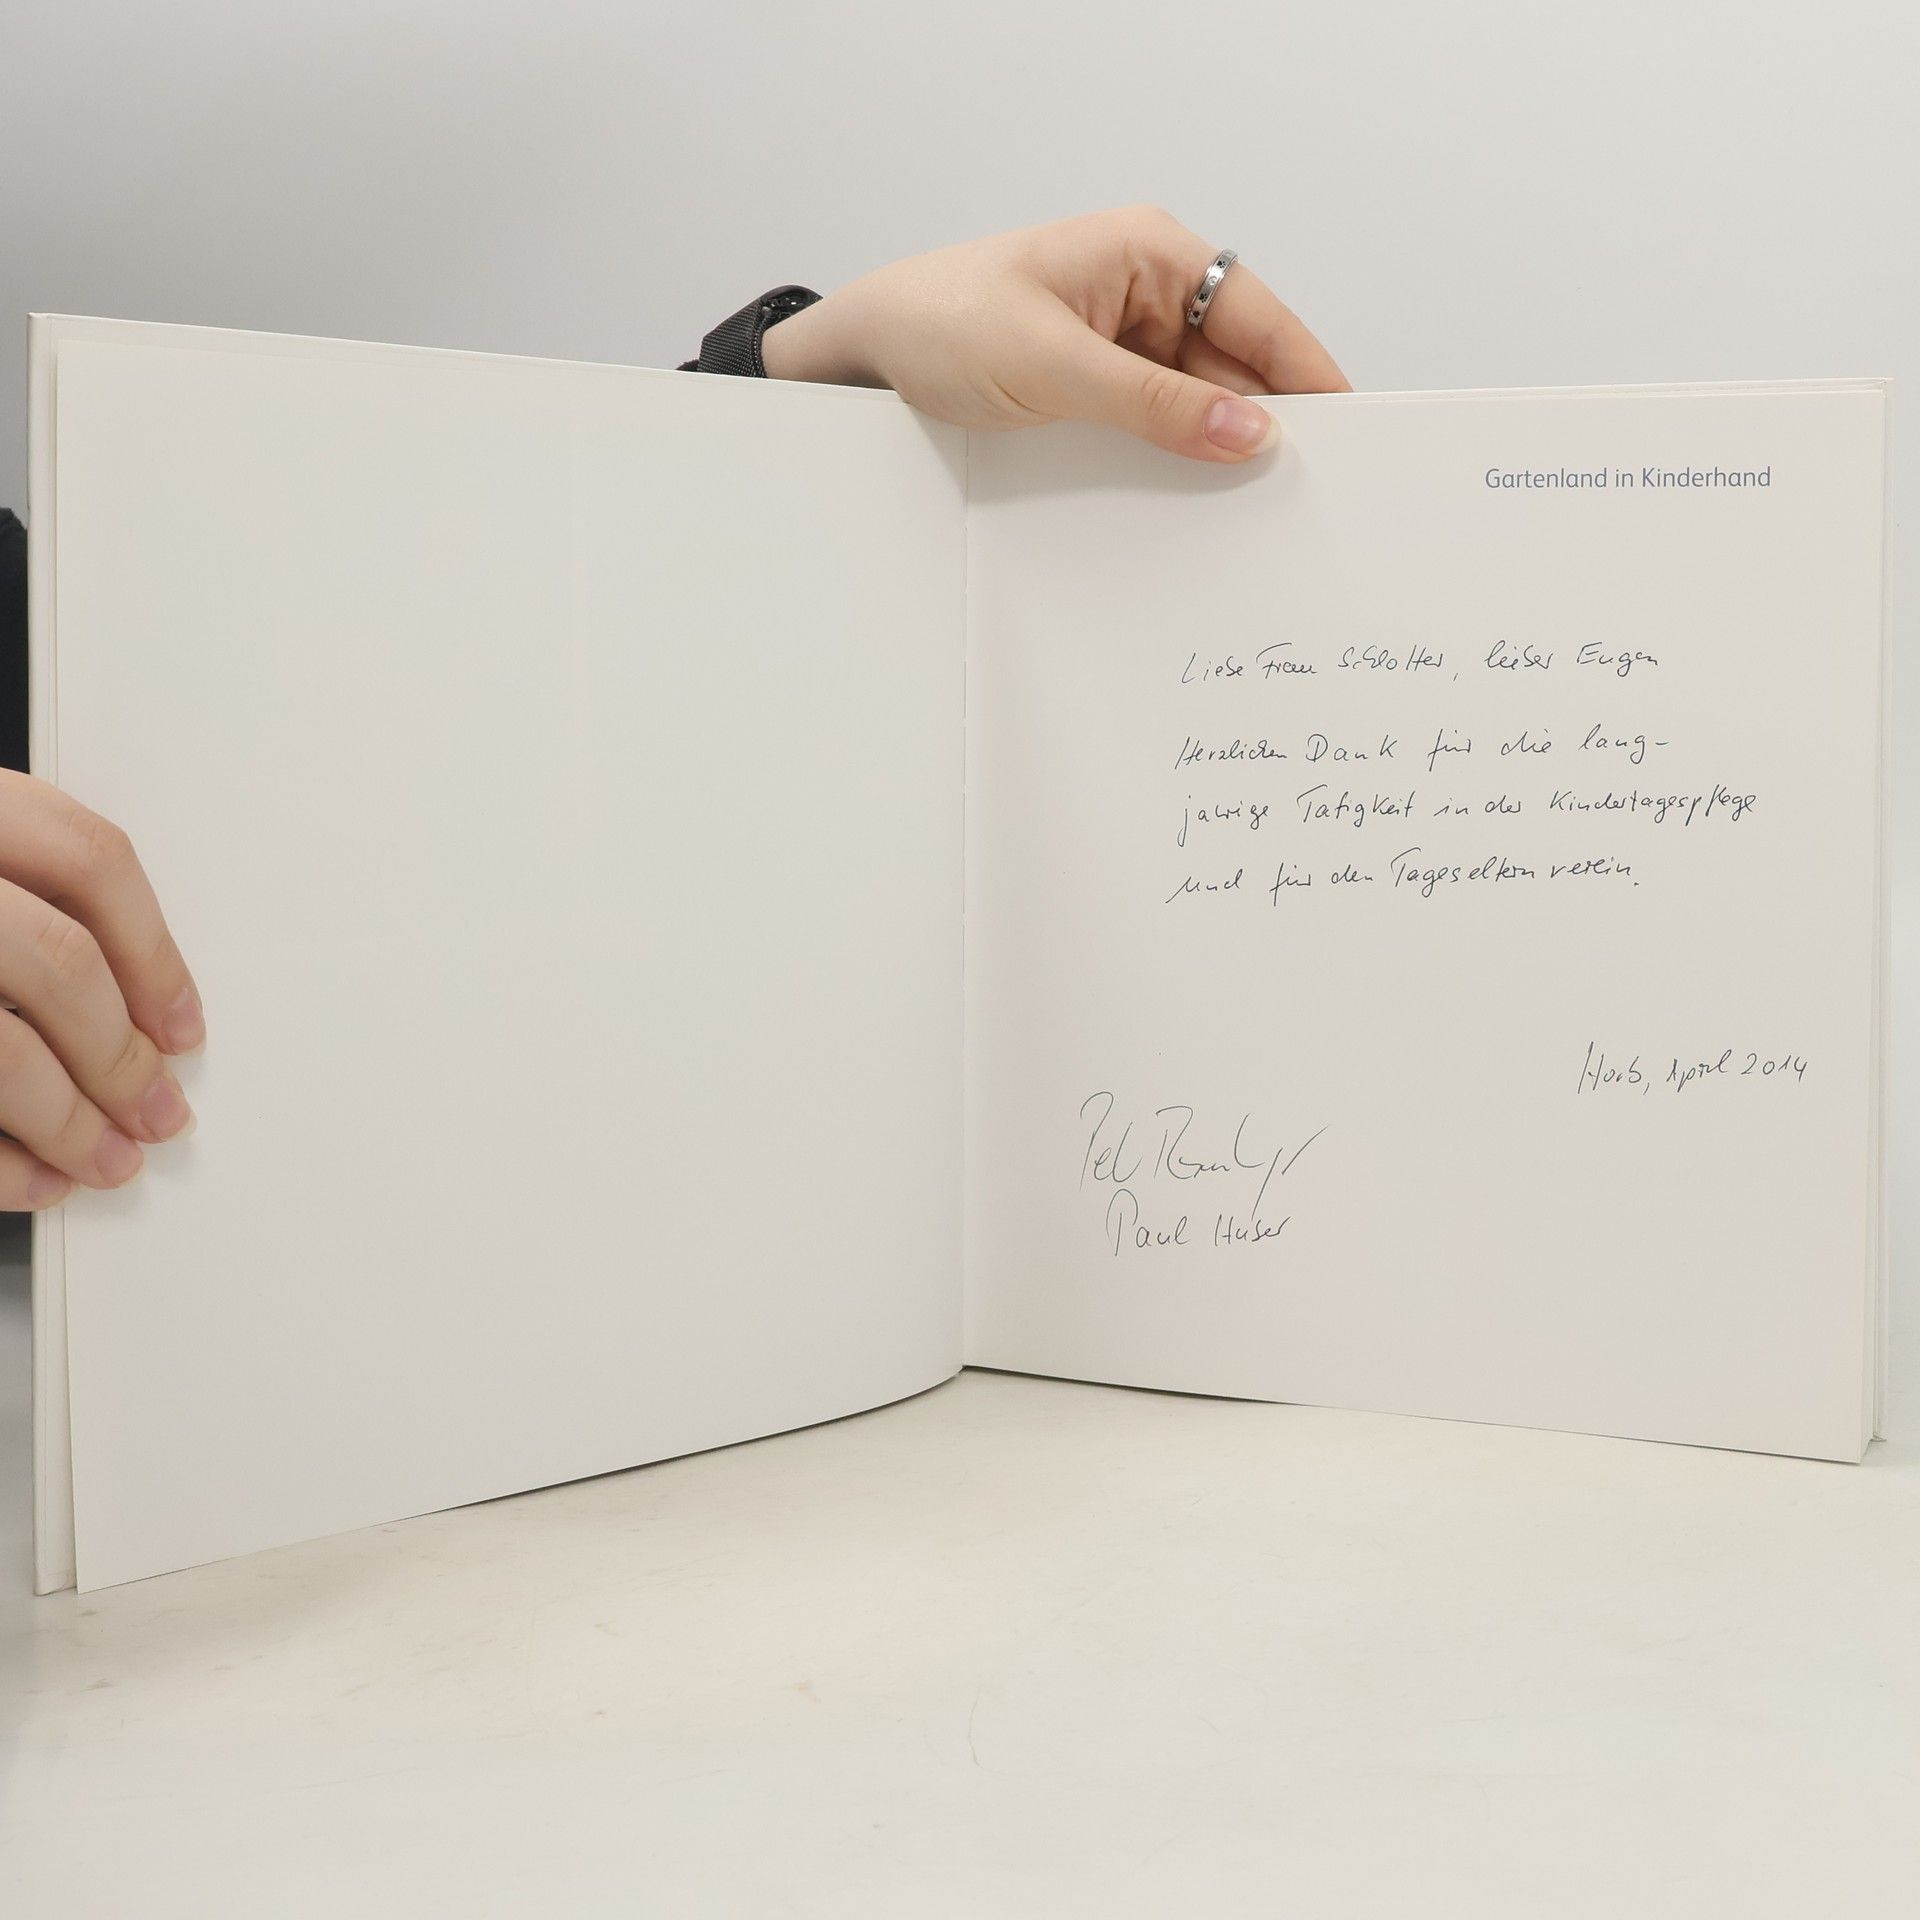 Gartenland in Kinderhand
Liebe Frau Schlotter, lieber Eugen
Herzlichen Dank für die lang-
jährige Tätigkeit in der Kindertagespflege
und für den Tageselternverein.
Horb, April 2014
Paul Huber